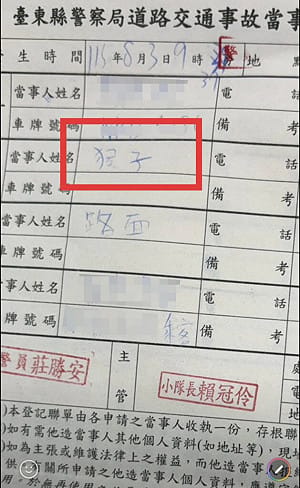 臺東縣警察局道路交通事故當事
生時間 113年8月3日9時 地點
當事人姓名 電話
車牌號碼 備考
當事人姓名 猴子 電話
車牌號碼 備考
當事人姓名 路面 電話
車牌號碼 備考
當事人姓名 電話
車牌號碼 備考
警員莊勝安
主管
小隊長賴冠伶
)本登記聯單由各申請之當事人收執一份，存根聯
)如有需他造當事人其他個人資料(如地址等)，現場
)如為主張或維護法律上之權益，而他造當事人
供 關所申請之他造當事人個人資料，應遵